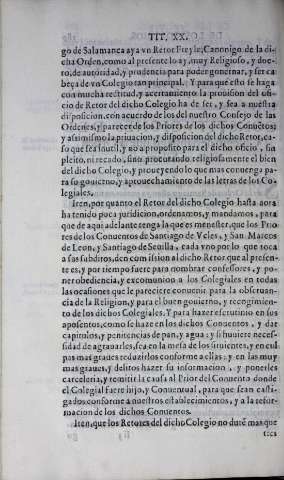 TIT. XX.
go de Salamanca aya vn Retor Freyle, Canonigo de la di-
cha Orden, como al presente lo ay, muy Religioso, y doc-
to, de autoridad, y prudencia para poder gouernar, y ser ca
beça de vn Colegio tan principal. Y para que esto se haga
con mucha rectitud, y acertamiento la prouision del ofi-
cio de Retor del dicho Colegio ha de ser, y sea a nuestra
disposicion, con acuerdo de los del nuestro Consejo de las
Ordenes, y parecer de los Priores de los dichos Conuētos;
y assimismo la priuacion, y disposicion del dicho Retor, ca-
so que sea inutil, y no a proposito para el dicho oficio, sin
pleito, ni recado, sino procurando religiosamente el bien
del dicho Colegio, y proueyendo lo que mas conuenga pa-
ra su gouierno, y aprouechamiento de las letras de los Co-
legiales.
Iten, por quanto el Retor del dicho Colegio hasta aora
ha tenido poca juridicion, ordenamos, y mandamos, para
que de aqui adelante tenga la que es menester, que los Prio
res de los Conuentos de Santiago de Vcles, y San Marcos
de Leon, y Santiago de Seuilla, cada vno por lo que toca
a sus subditos, den comission al dicho Retor, que al presen-
te es, y por tiempo fuere para nombrar confessores, y po-
ner obediencia, y excomunion a los Colegiales en todas
las ocasiones que le pareciere conuenir para la obseruan-
cia de la Religion, y para el buen gouierno, y recogimien-
to de los dichos Colegiales. Y para hazer escrutinio en sus
aposentos, como se haze en los dichos Conuentos, y dar
capitulos, y penitencias de pan, y agua: y si huuiere neces-
sidad de agrauarles, sea en la mesa de los siruientes, y en cul
pas mas graues reduzirlos conforme a ellas: y en las muy
mas graues, y delitos hazer su informacion, y ponerles
carceleria, y remitir la causa al Prior del Conuento donde
el Colegial fuere hijo, y Conuentual, para que sean casti-
gados conforme a nuestros establecimientos, y a la refor-
macion de los dichos Conuentos.
Iten, que los Retores del dicho Colegio no durē mas que
tres